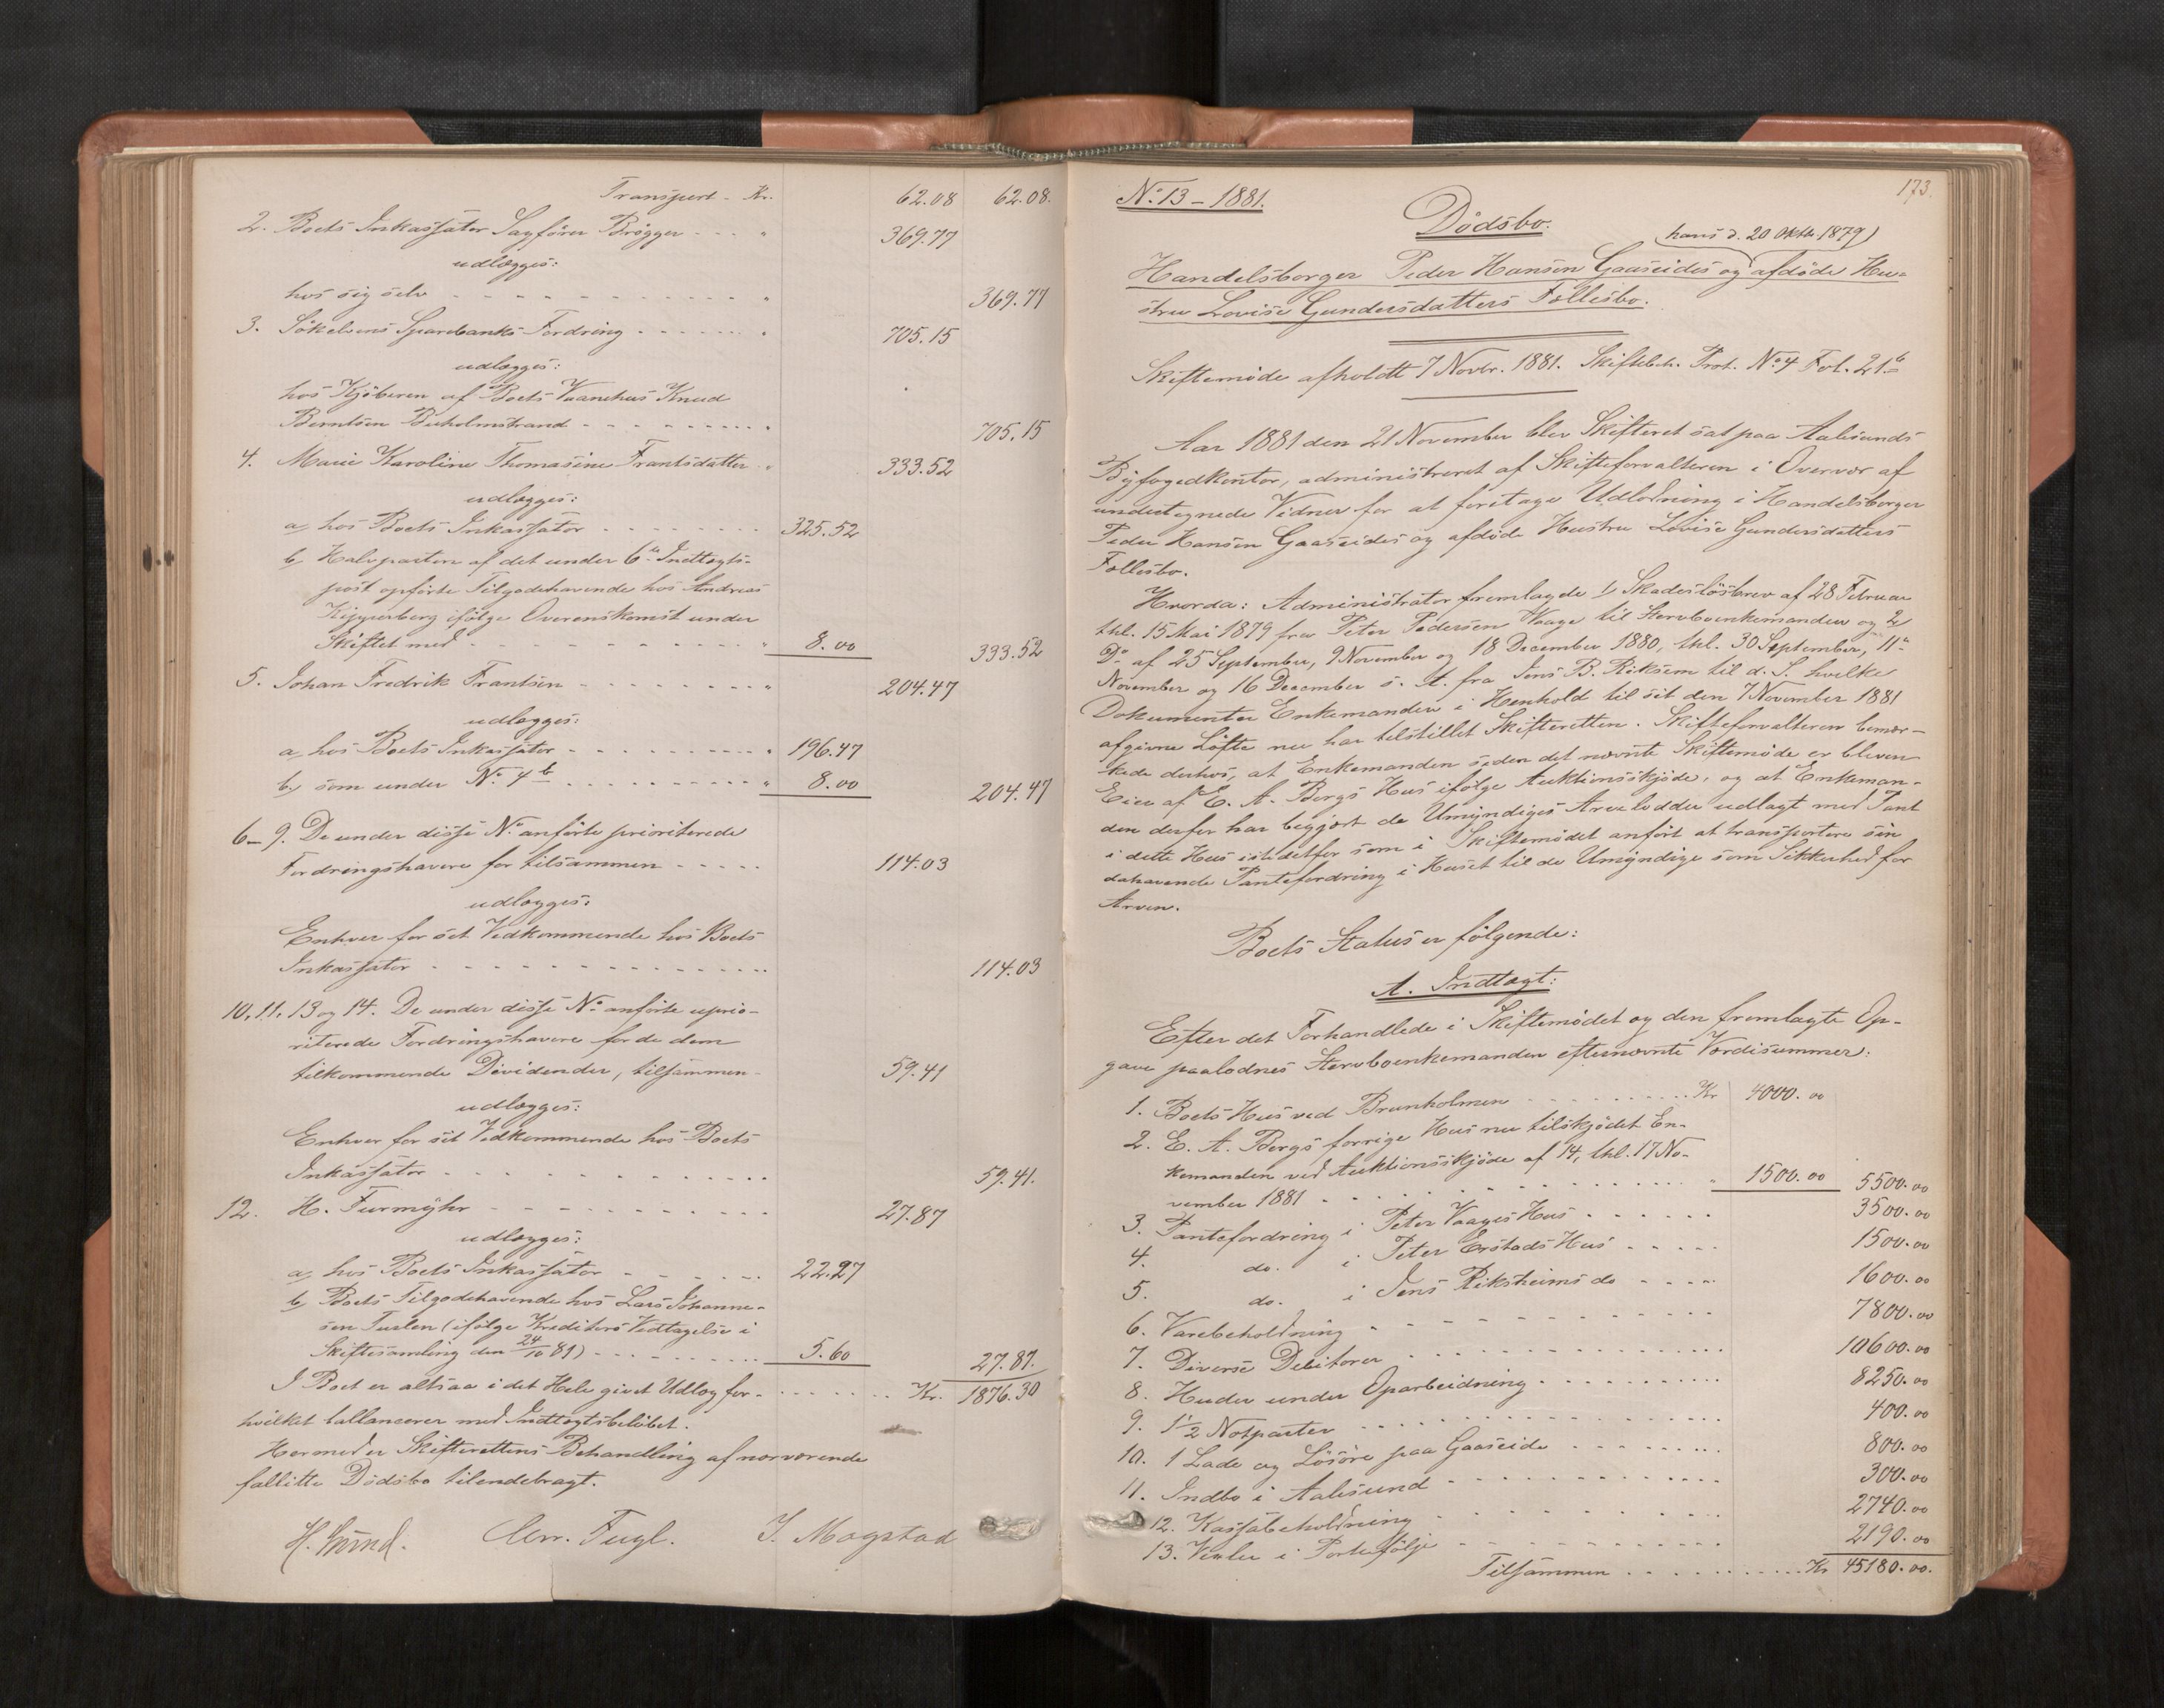 Transport - Kr. 62.08 62.08.
2. Boets Inkassator Sagfører Brøgger - - - " 369.77
udlægges:
hos sig selv - - - - - - - - - - - " 369.77
3. Søkelvens Sparebanks Fordring - - - - - - " 705.15
udlægges:
hos Kjøberen af Boets Vaanehus Knud
Berntsen Buholmstrand - - - - - - - - - 705.15
4. Marie Karoline Thomasine Frantsdatter " 333.52
udlægges:
a, hos Boets Inkassator - - - - - - - 325.52
b, Halvparten af det under 6te Indtægts-
post opførte Tilgodehavende hos Andreas
Kipperberg ifølge Overenskomst under
Skiftet med - - - - - - - - - - " 8.00 333.52
5. Johan Fredrik Frantsen - - - - - - - " 204.47
udlægges:
a, hos Boets Inkassator - - - - - - - - 196.47
b, som under No. 4 b - - - - - - - - " 8.00 204.47
6-9. De under disse No. anførte prioriterede
Fordringshavere for tilsammen - - - - - 114.03
udlægges:
Enhver for sit Vedkommende hos Boets
Inkassator - - - - - - - - - - - - - 114.03
10, 11, 13 og 14. De under disse No. anførte uprio-
riterede Fordringshavere for de dem
tilkommende Dividender, tilsammen - 59.41
udlægges:
Enhver for sit Vedkommende hos Boets
Inkassator - - - - - - - - - - - - 59.41.
12. H. Furmyhr - - - - - - - - - - 27.87
udlægges:
a, hos Boets Inkassator - - - - - - 22.27
b, Boets Tilgodehavende hos Lars Johanne-
sen (ifølge Kreditors Vedtagelse i
Skiftesamling den 24/10 81) - - - - - - - 5.60 27.87.
I Boet er altsaa i det Hele givet Udlæg for - - - - - - - Kr. 1876.30
hvilket ballancerer med Indtægtsbeløbet.
Hermed er Skifterettens Behandling af nærværende
fallitte Dødsbo tilendebragt.
Chr. Fugl. J. Magstad
173.
No. 13 - 1881.
Dødsbo.
(hans d. 20 Oktbr. 1879)
Handelsborger Peder Hansen Gaaseides og afdøde Hu-
stru Lovise Gundersdatters Fællesbo.
Skiftemøde afholdt 7 Novbr. 1881. Skiftebeh. Prot. No. 4 Fol. 21b
Aar 1881 den 21 November blev Skifteret sat paa Aalesunds
Byfogedkontor, administreret af Skifteforvalteren i Overvær af
undertegnede Vidner for at foretage Udlodning i Handelsborger
Peder Hansen Gaaseides og afdøde Hustru Lovise Gundersdatters
Fællesbo.
Hvorda: Administrator fremlagde 1, Skadesløsbrev af 28 Februar
thl. 15 Mai 1879 fra Peter Pedersen Waage til Stervboenkemanden og 2,
Do. af 25 September, 9 November og 18 December 1880, thl. 30 September, 11te
November og 16 December s. A. fra Jens B. Riksem til d. S. hvilke
Dokumenter Enkemanden i Henhold til sit den 7 November 1881
afgivne Løfte nu har tilstillet Skifteretten. Skifteforvalteren bemær-
kede derhos, at Enkemanden siden det nævnte Skiftemøde er bleven
Eier af E. A. Bergs Hus ifølge Auktionsskjøde, og at Enkeman-
den derfor har begjært de Umyndiges Arvelodder udlagt med Pant
i dette Hus istedetfor som i Skiftemødet anført at transportere sin
dahavende Pantefordring i Huset til de Umyndige som Sikkerhed for
Arven.
Boets Status er følgende:
A. Indtægt:
Efter det Forhandlede i Skiftemødet og den fremlagte Op-
gave paalodnes Stervboenkemanden efternævnte Værdisummer:
1. Boets Hus ved Brunholmen - - - - - - - - Kr 4000.00
2. E. A. Bergs forrige Hus nu tilskjødet En-
kemanden ved Auktionsskjøde af 14, thl. 17 No-
vember 1881 - - - - - - - - - - - - - " 1500.00 5500.00
3. Pantefordring i Peter Vaages Hus - - - - - - 3500.00
4. do. i Peter Erstads Hus - - - - - 1500.00
5. do. i Jens Riksheims do - - - - 1600.00
6. Varebeholdning - - - - - - - - - - - 7800.00
7. Diverse Debitorer - - - - - - - - - - - 10600.00
8. Huder under Oparbeidning - - - - - - - - 8250.00
9. 1 1/2 Notparter - - - - - - - - - - - - 400.00
10. 1 Lade og Løsøre paa Gaaseide - - - - - - - 800.00
11. Indbo i Aalesund - - - - - - - - - - 300.00
12. Kassabeholdning - - - - - - - - - - 2740.00
13. Vexler i Portefølje - - - - - - - - - - 2190.00
Tilsammen - - - - - - - - - - Kr 45180.00.